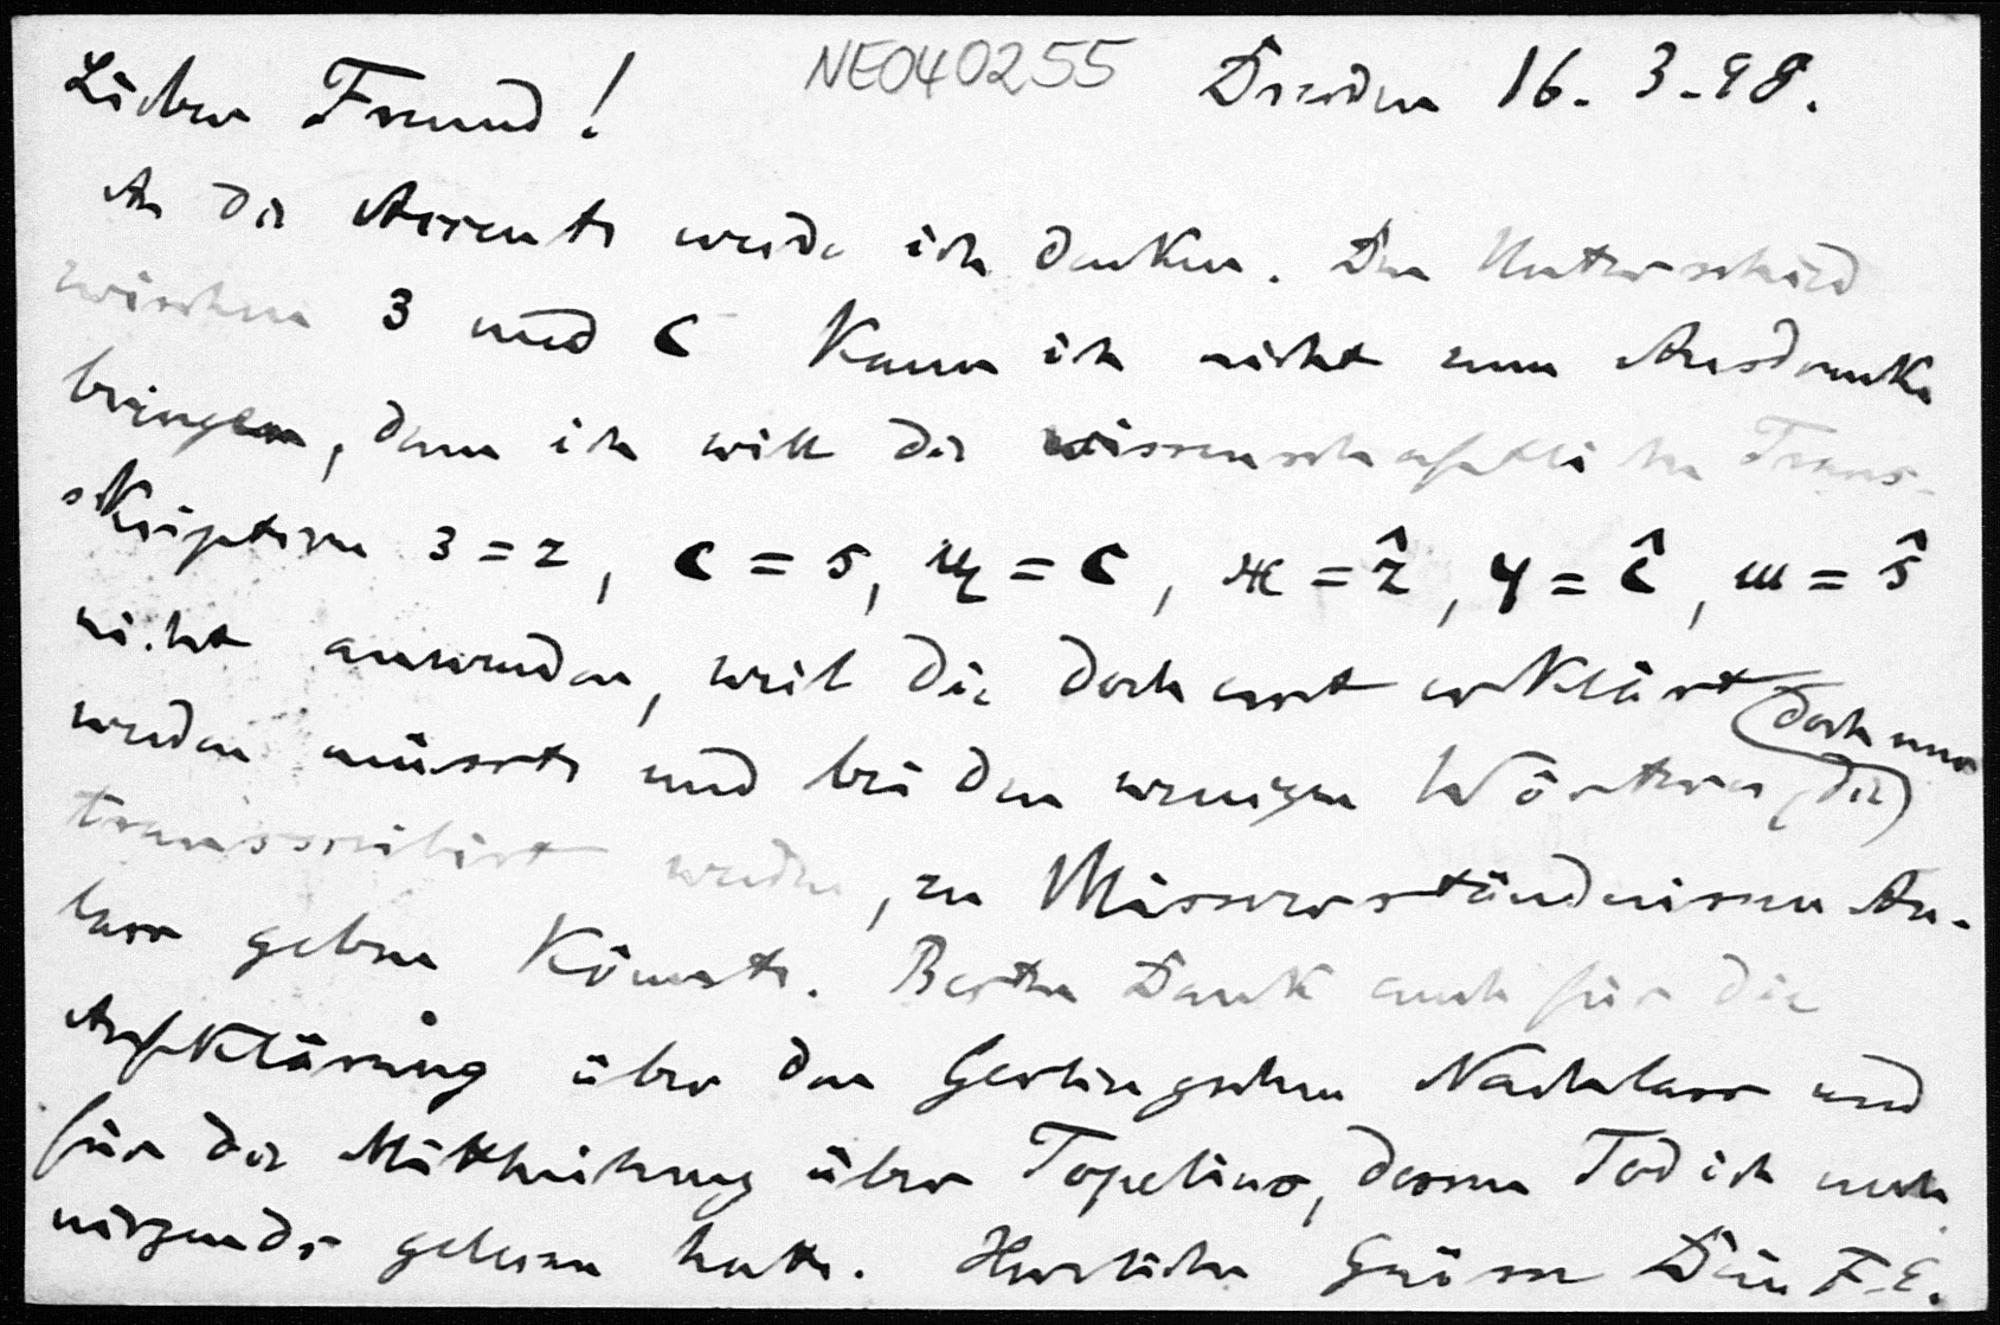 Lieber Freund! NE040255 Dresden 16. 3. 98.
An die Accente werde ich denken. Den Unterschied
zwischen з und с kann ich nicht zum Ausdrucke
bringen, denn ich will die wissenschaftlichen Trans-
skriptionen з = z, с = s, ц = c, ж = ẑ, ч = ĉ, ш = ŝ
nicht anwenden, weil die doch erst erklärt
werden müsste und bei den wenigen Wörtern, die doch nur
transscribirt werden, zu Missverständnissen An-
lass geben könnte. Besten Dank auch für die
Aufklärung über den Gerlingschen Nachlass und
für die Mittheilung über Topelius, dessen Tod ich noch
nirgends gelesen hatte. Herzliche Grüsse Dein F. E.